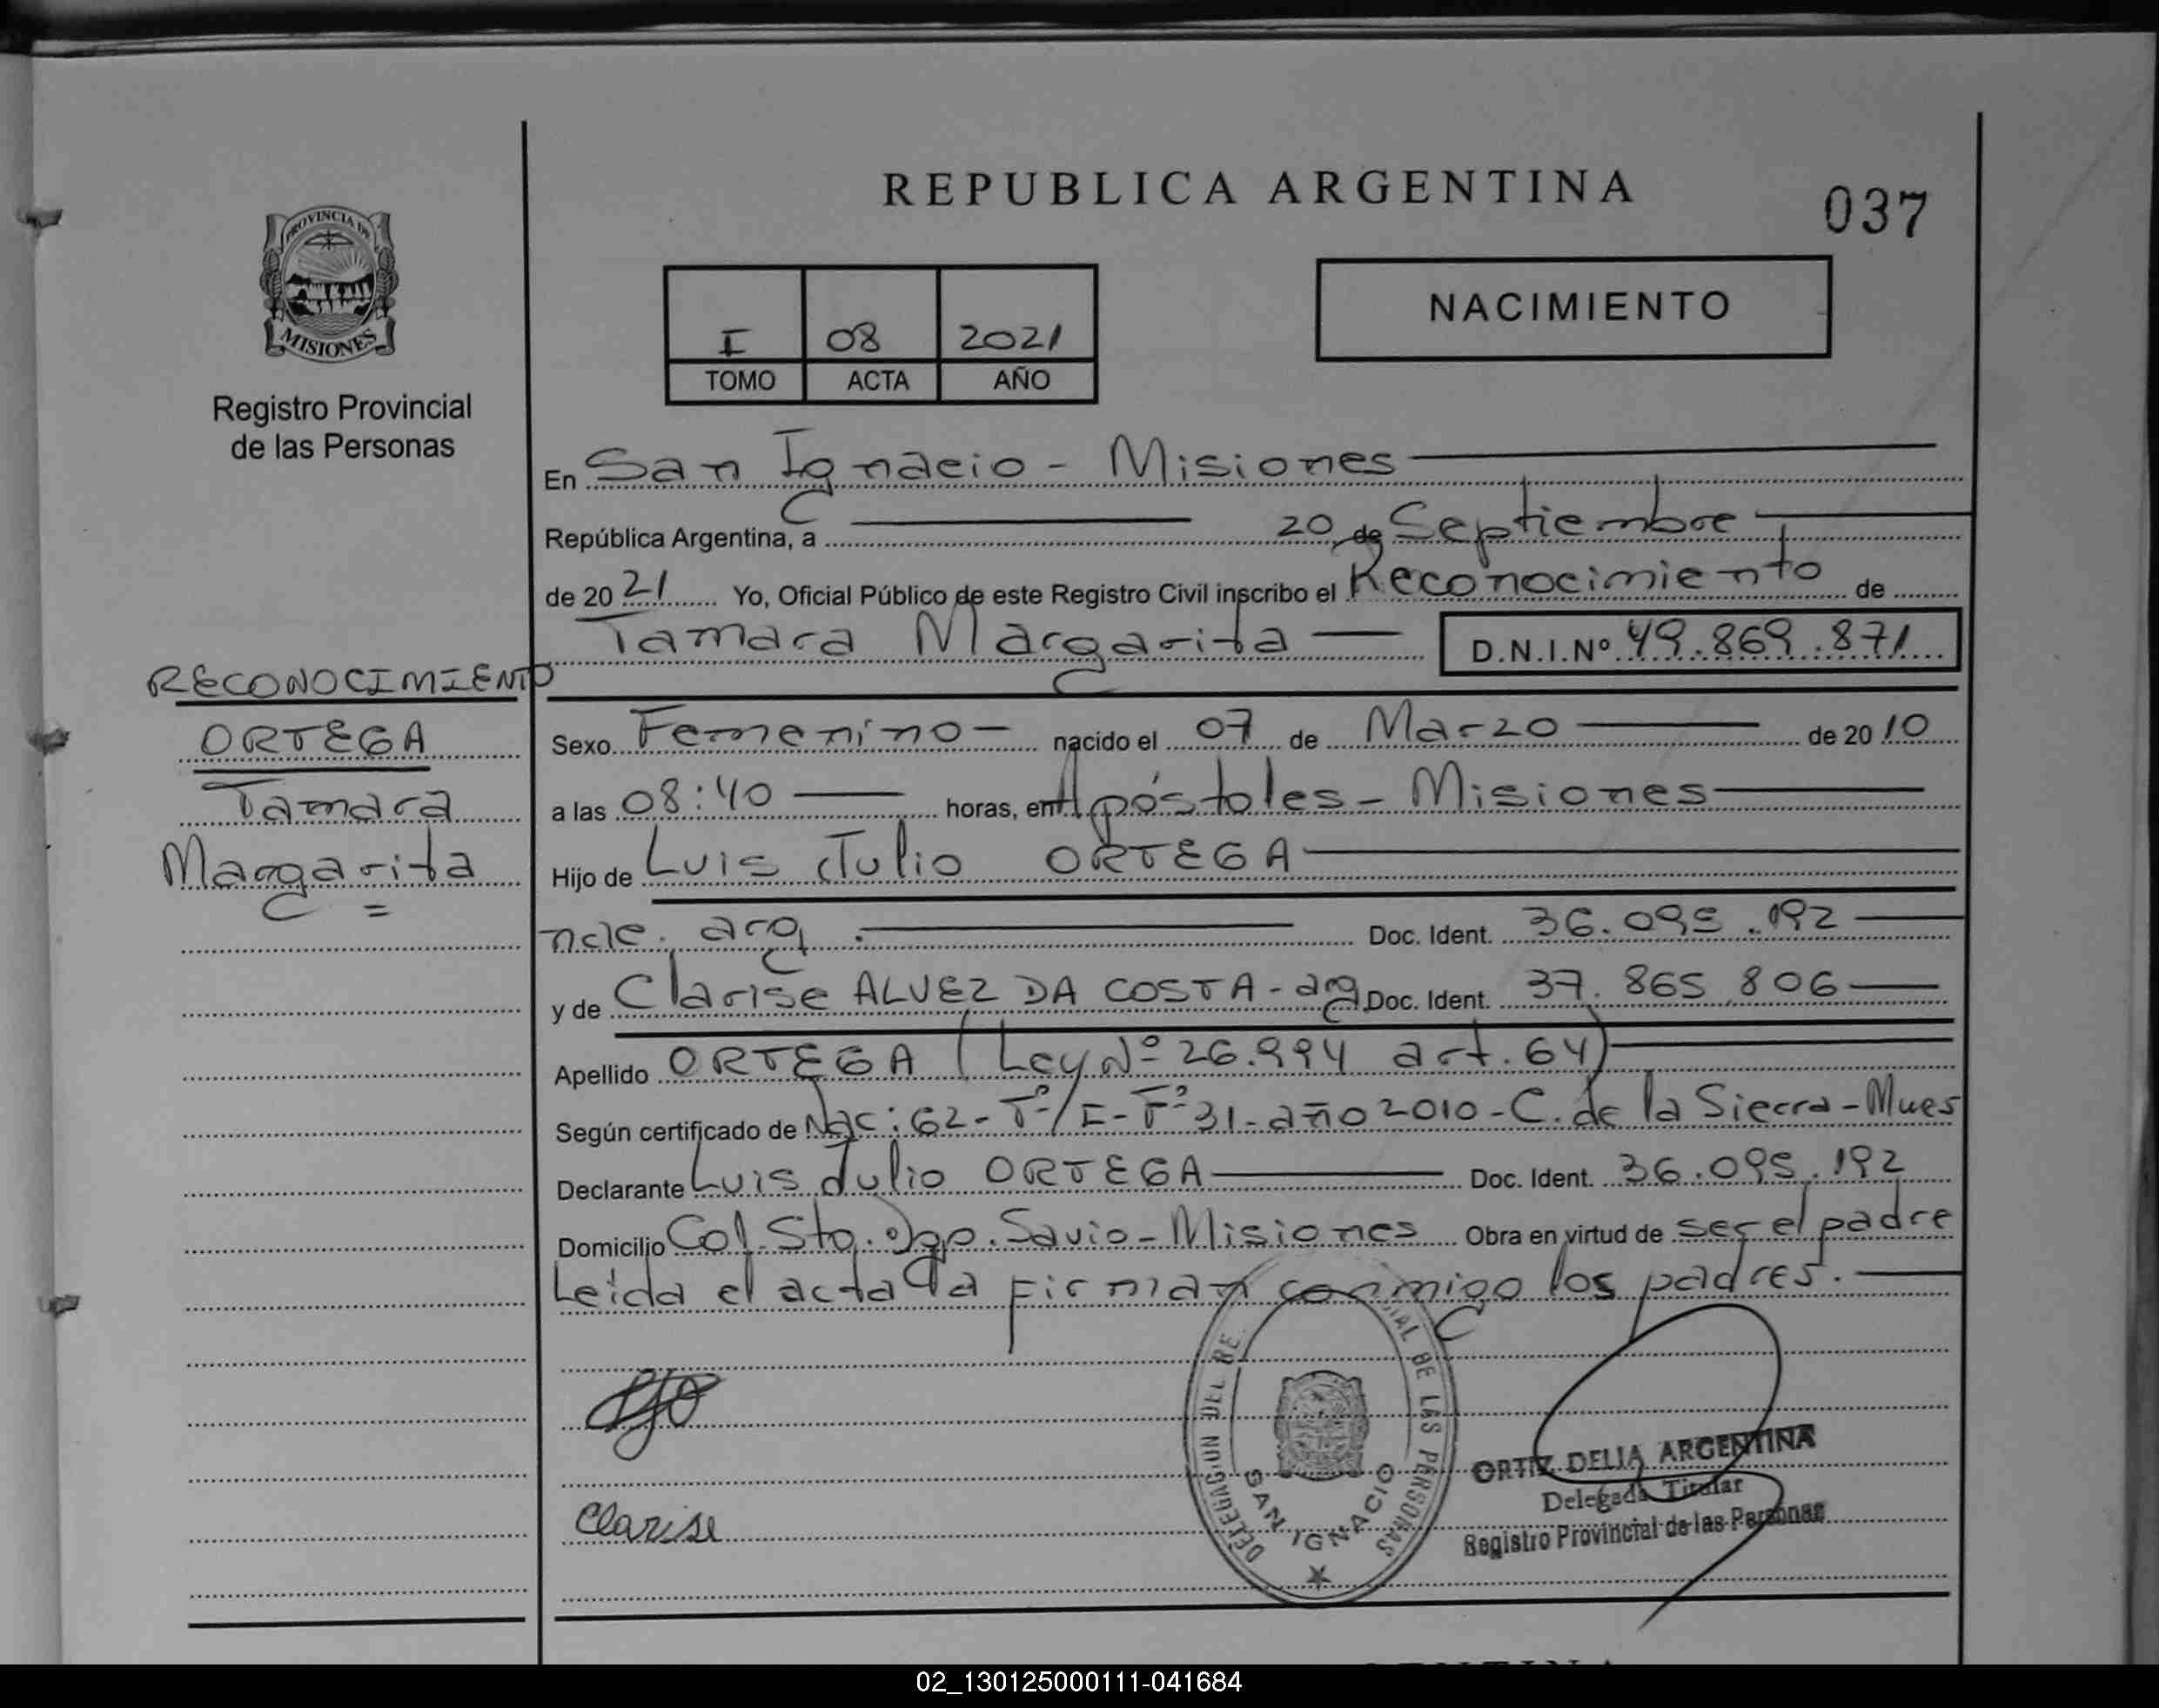 REPUBLICA ARGENTINA
037
PROVINCIA DE
MISIONES
Registro Provincial
de las Personas
NACIMIENTO
I 08 2021
TOMO ACTA AÑO
En San Ignacio - Misiones
República Argentina, a 20 de Septiembre
de 2021 Yo, Oficial Público de este Registro Civil inscribo el Reconocimiento de
Tamara Margarita D.N.I.Nº 49.869.871
RECONOCIMIENTO
ORTEGA
Tamara
Margarita
Sexo Femenino - nacido el 07 de Marzo de 2010
a las 08:40 horas, en Apóstoles - Misiones
Hijo de Luis Julio ORTEGA
nac. arg. Doc. Ident. 36.095.192
y de Clarise ALVEZ DA COSTA - arg Doc. Ident. 37.865.806
Apellido ORTEGA (Ley Nº 26.994 art. 64)
Según certificado de Nac: 62 - Tº/I - Fº 31 - año 2010 - C. de la Sierra - Mnes
Declarante Luis Julio ORTEGA Doc. Ident. 36.095.192
Domicilio Col. Sto. Dgo. Savio - Misiones Obra en virtud de ser el padre
Leida el acta la firman conmigo los padres.
Clarise
DELEGACION DEL RE IAL DE LAS PERSONAS
SAN IGNACIO
ORTIZ DELIA ARGENTINA
Delegada Titular
Registro Provincial de las Personas
02_130125000111-041684